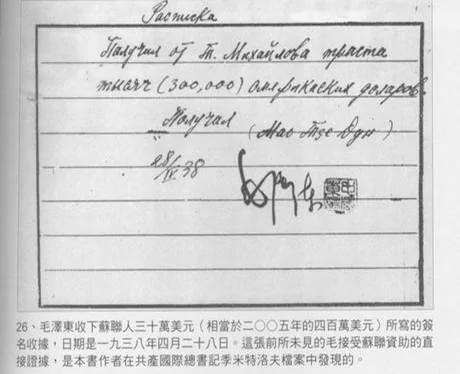 Расписка
Получил от Т. Михайлова триста
тысяч (300,000) американских доларов.
Получил (Мао Тзе Дун)
28/IV 38
毛泽东
26、毛澤東收下蘇聯人三十萬美元（相當於二〇〇五年的四百萬美元）所寫的簽
名收據，日期是一九三八年四月二十八日。這張前所未見的毛接受蘇聯資助的直
接證據，是本書作者在共產國際總書記季米特洛夫檔案中發現的。